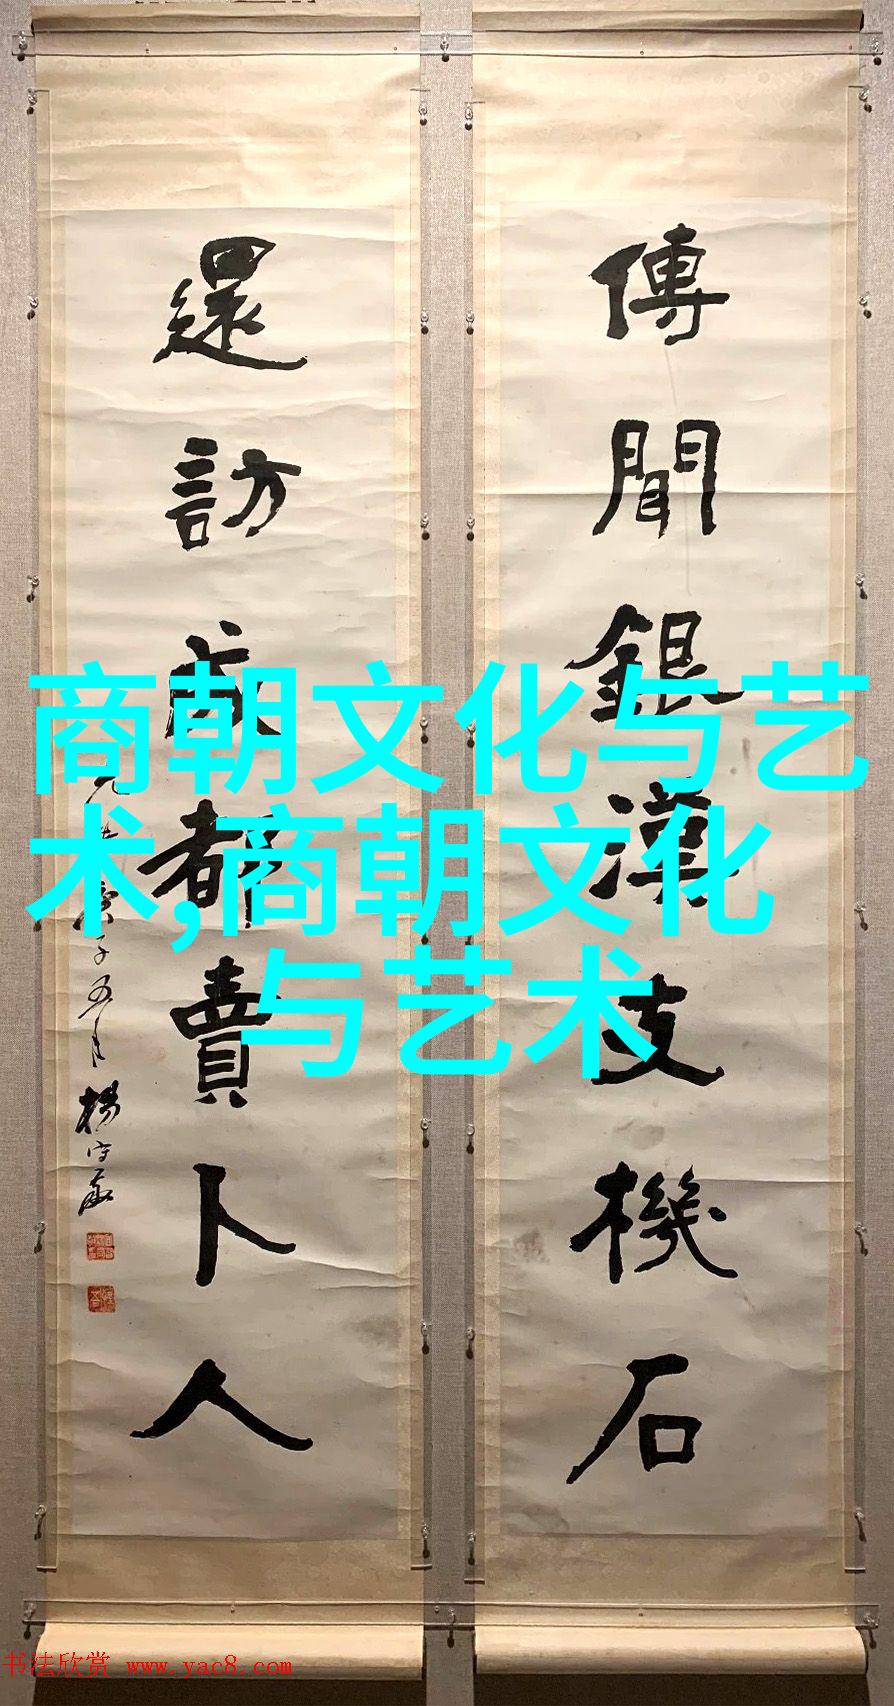 傳聞銀漢支機石
還訪成都賣卜人
庚子五月
楊守敬
商朝文化与艺
术,商朝文化
与艺术
书法欣赏 www.yac8.com